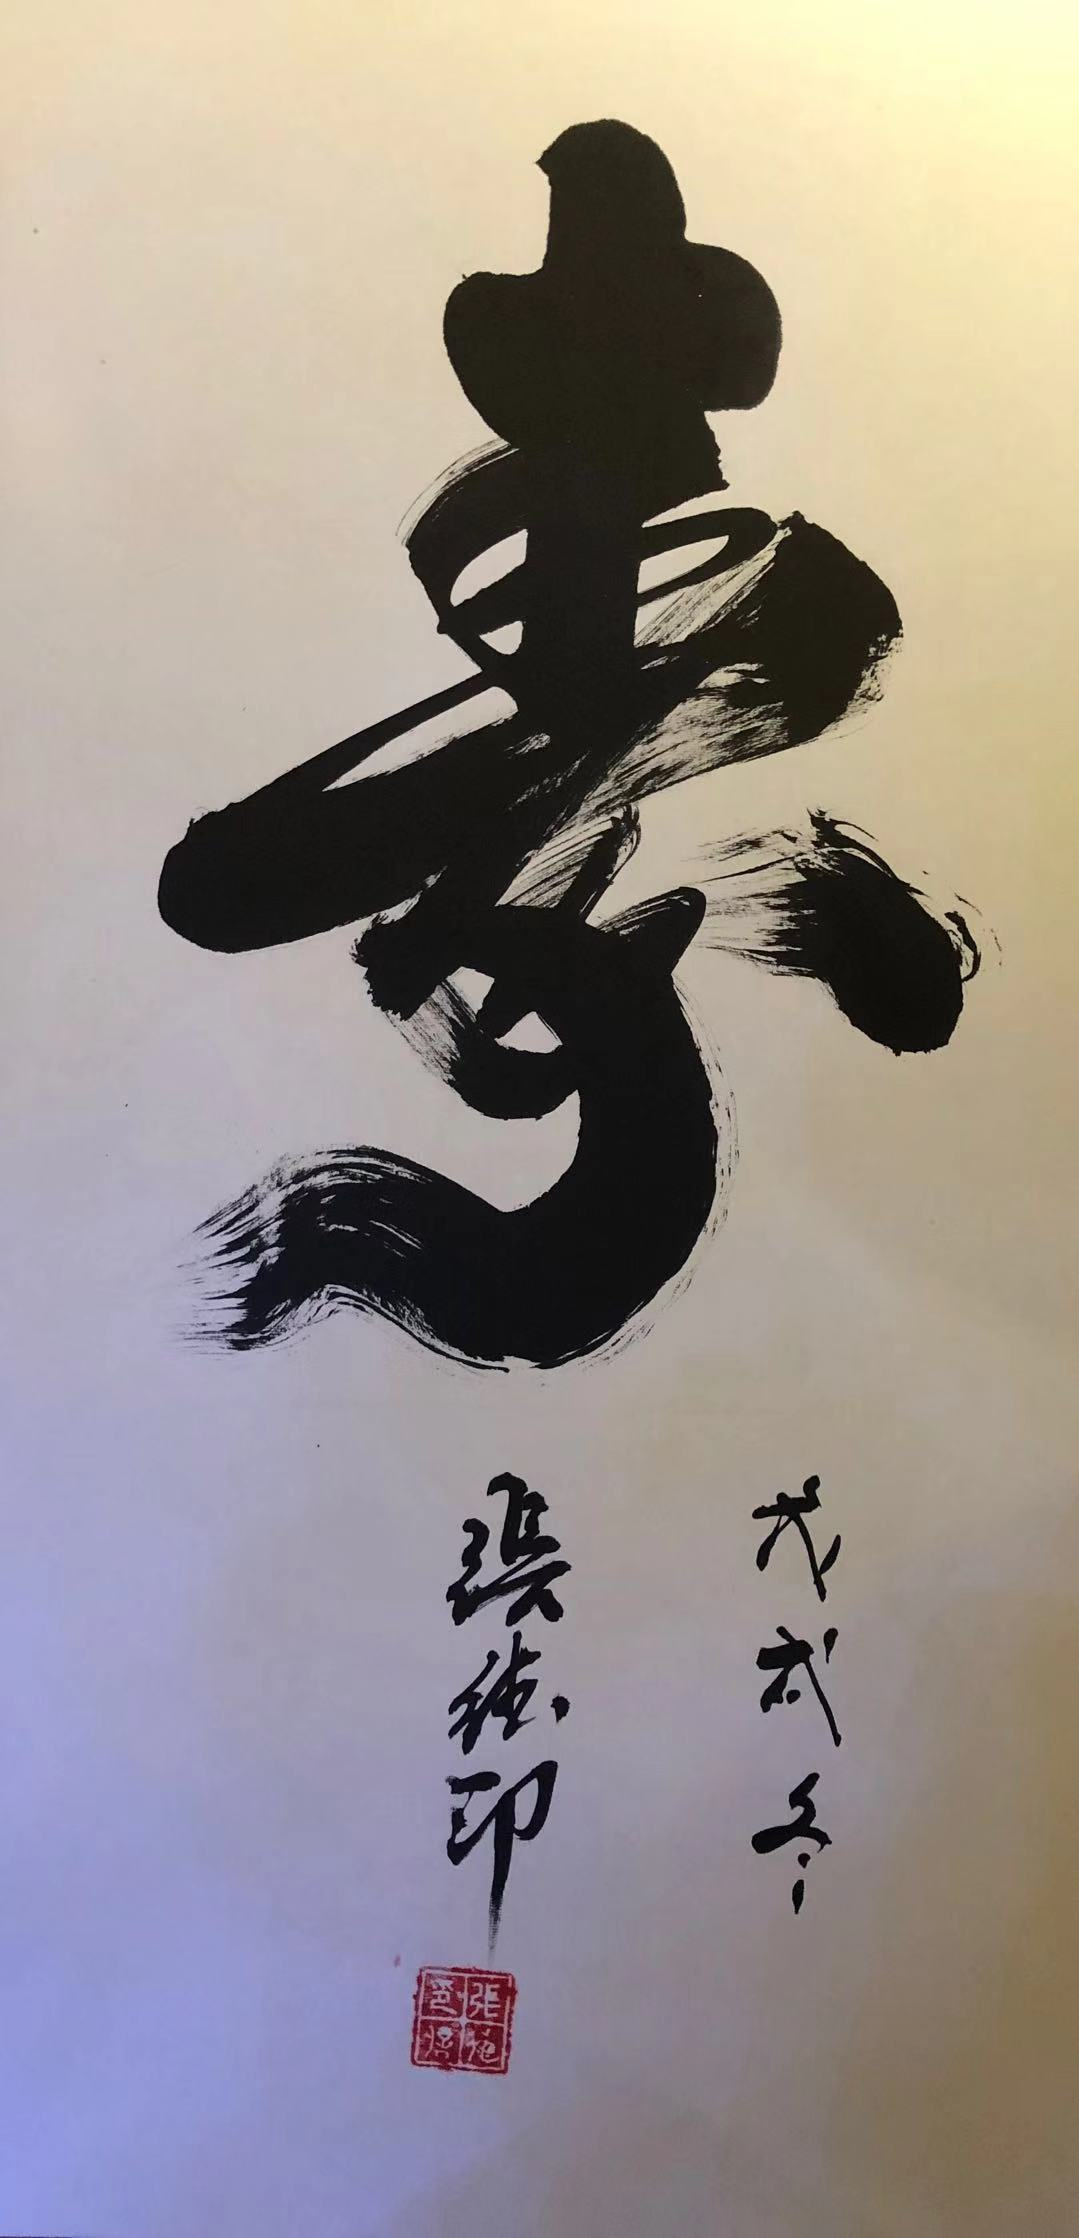 壽
戊戌冬
張德印